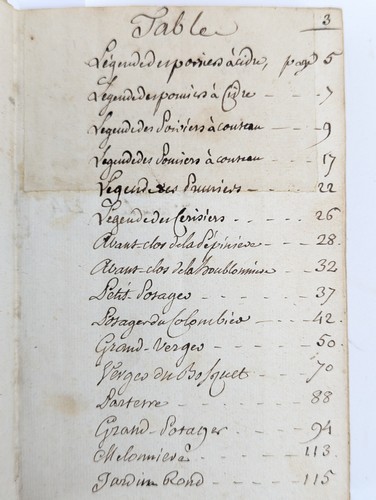 3
Table
Légende des poiriers à cidre, page 5
Légende des pomiers à Cidre - - - 7
Légende des Poiriers à couteau - - - 9
Légende des Pomiers à couteau - - - 17
Légende des Pruniers - - - - 22
Légende des Cerisiers - - - - - 26
Avant-clos de la Pépiniere - - - 28
Avant-clos de la Houblonniere - - 32
Petit-Potager - - - - - 37
Potager du Colombier - - - - 42
Grand-Verger - - - - - 50
Verger du Bosquet - - - - 70
Parterre - - - - - - 88
Grand-Potager - - - - 94
Melonniere - - - - - 113
Jardin Rond - - - - - 115